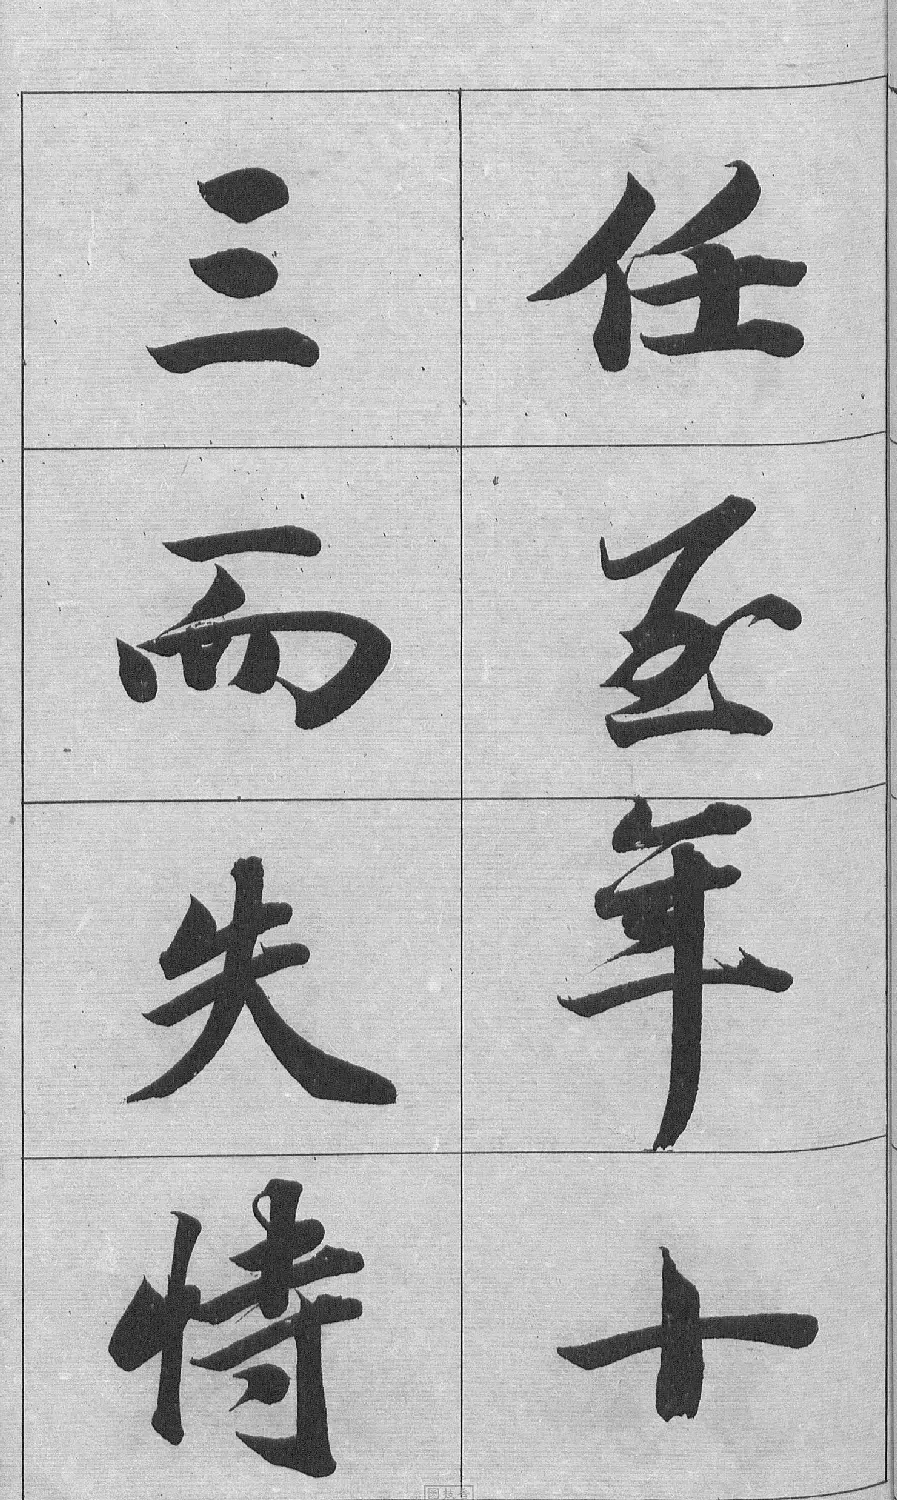 任至年十
三而失恃